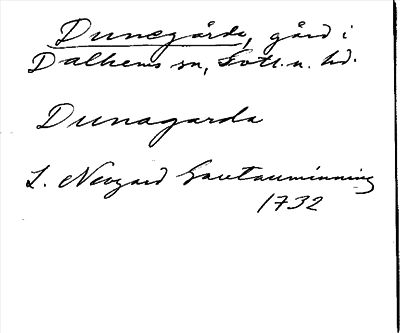 Dunegårde, gård i
Dalhems sn, Gotl. n. hd.
Dunagarda
L. Neogard Gautauminning
1732